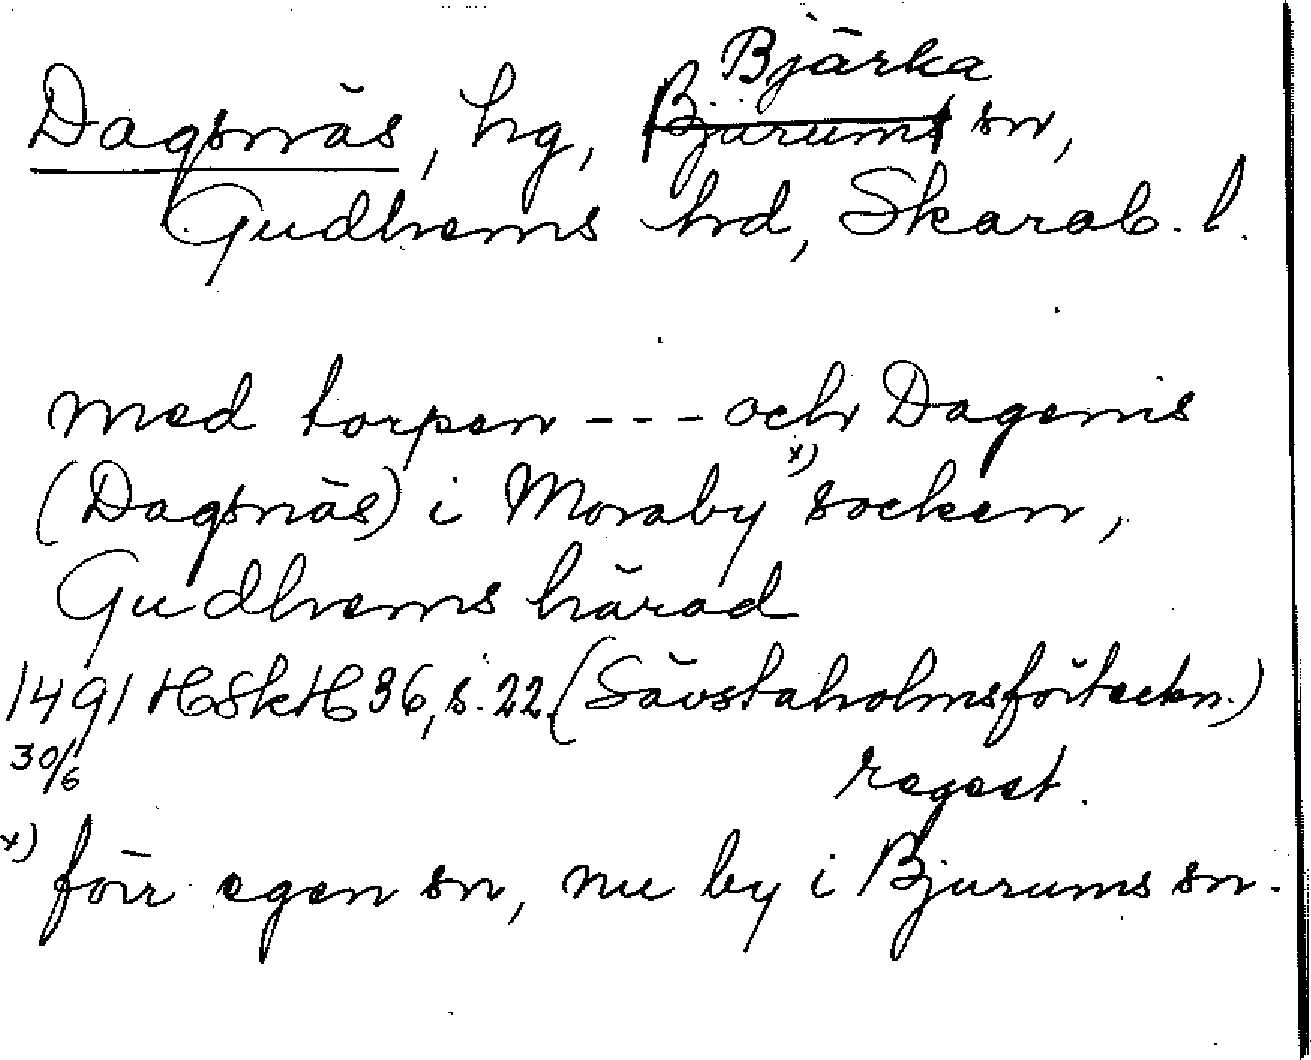 Bjärka
Dagsnäs, hg, Bjärums sn,
Gudhems hd, Skarab. l.
med torpen --- och Dagenis
(Dagsnäs) i Moraby x) socken,
Gudhems härad
1491 HSkH 36, s. 22 (Sävstaholmsförteckn.)
30/6
regest.
x) förr egen sn, nu by i Bjurums sn.